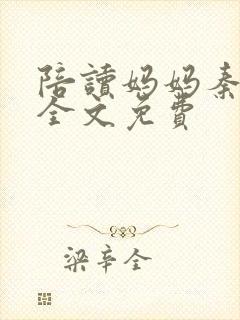 陪讀妈妈秦
全文免費
梁辛全